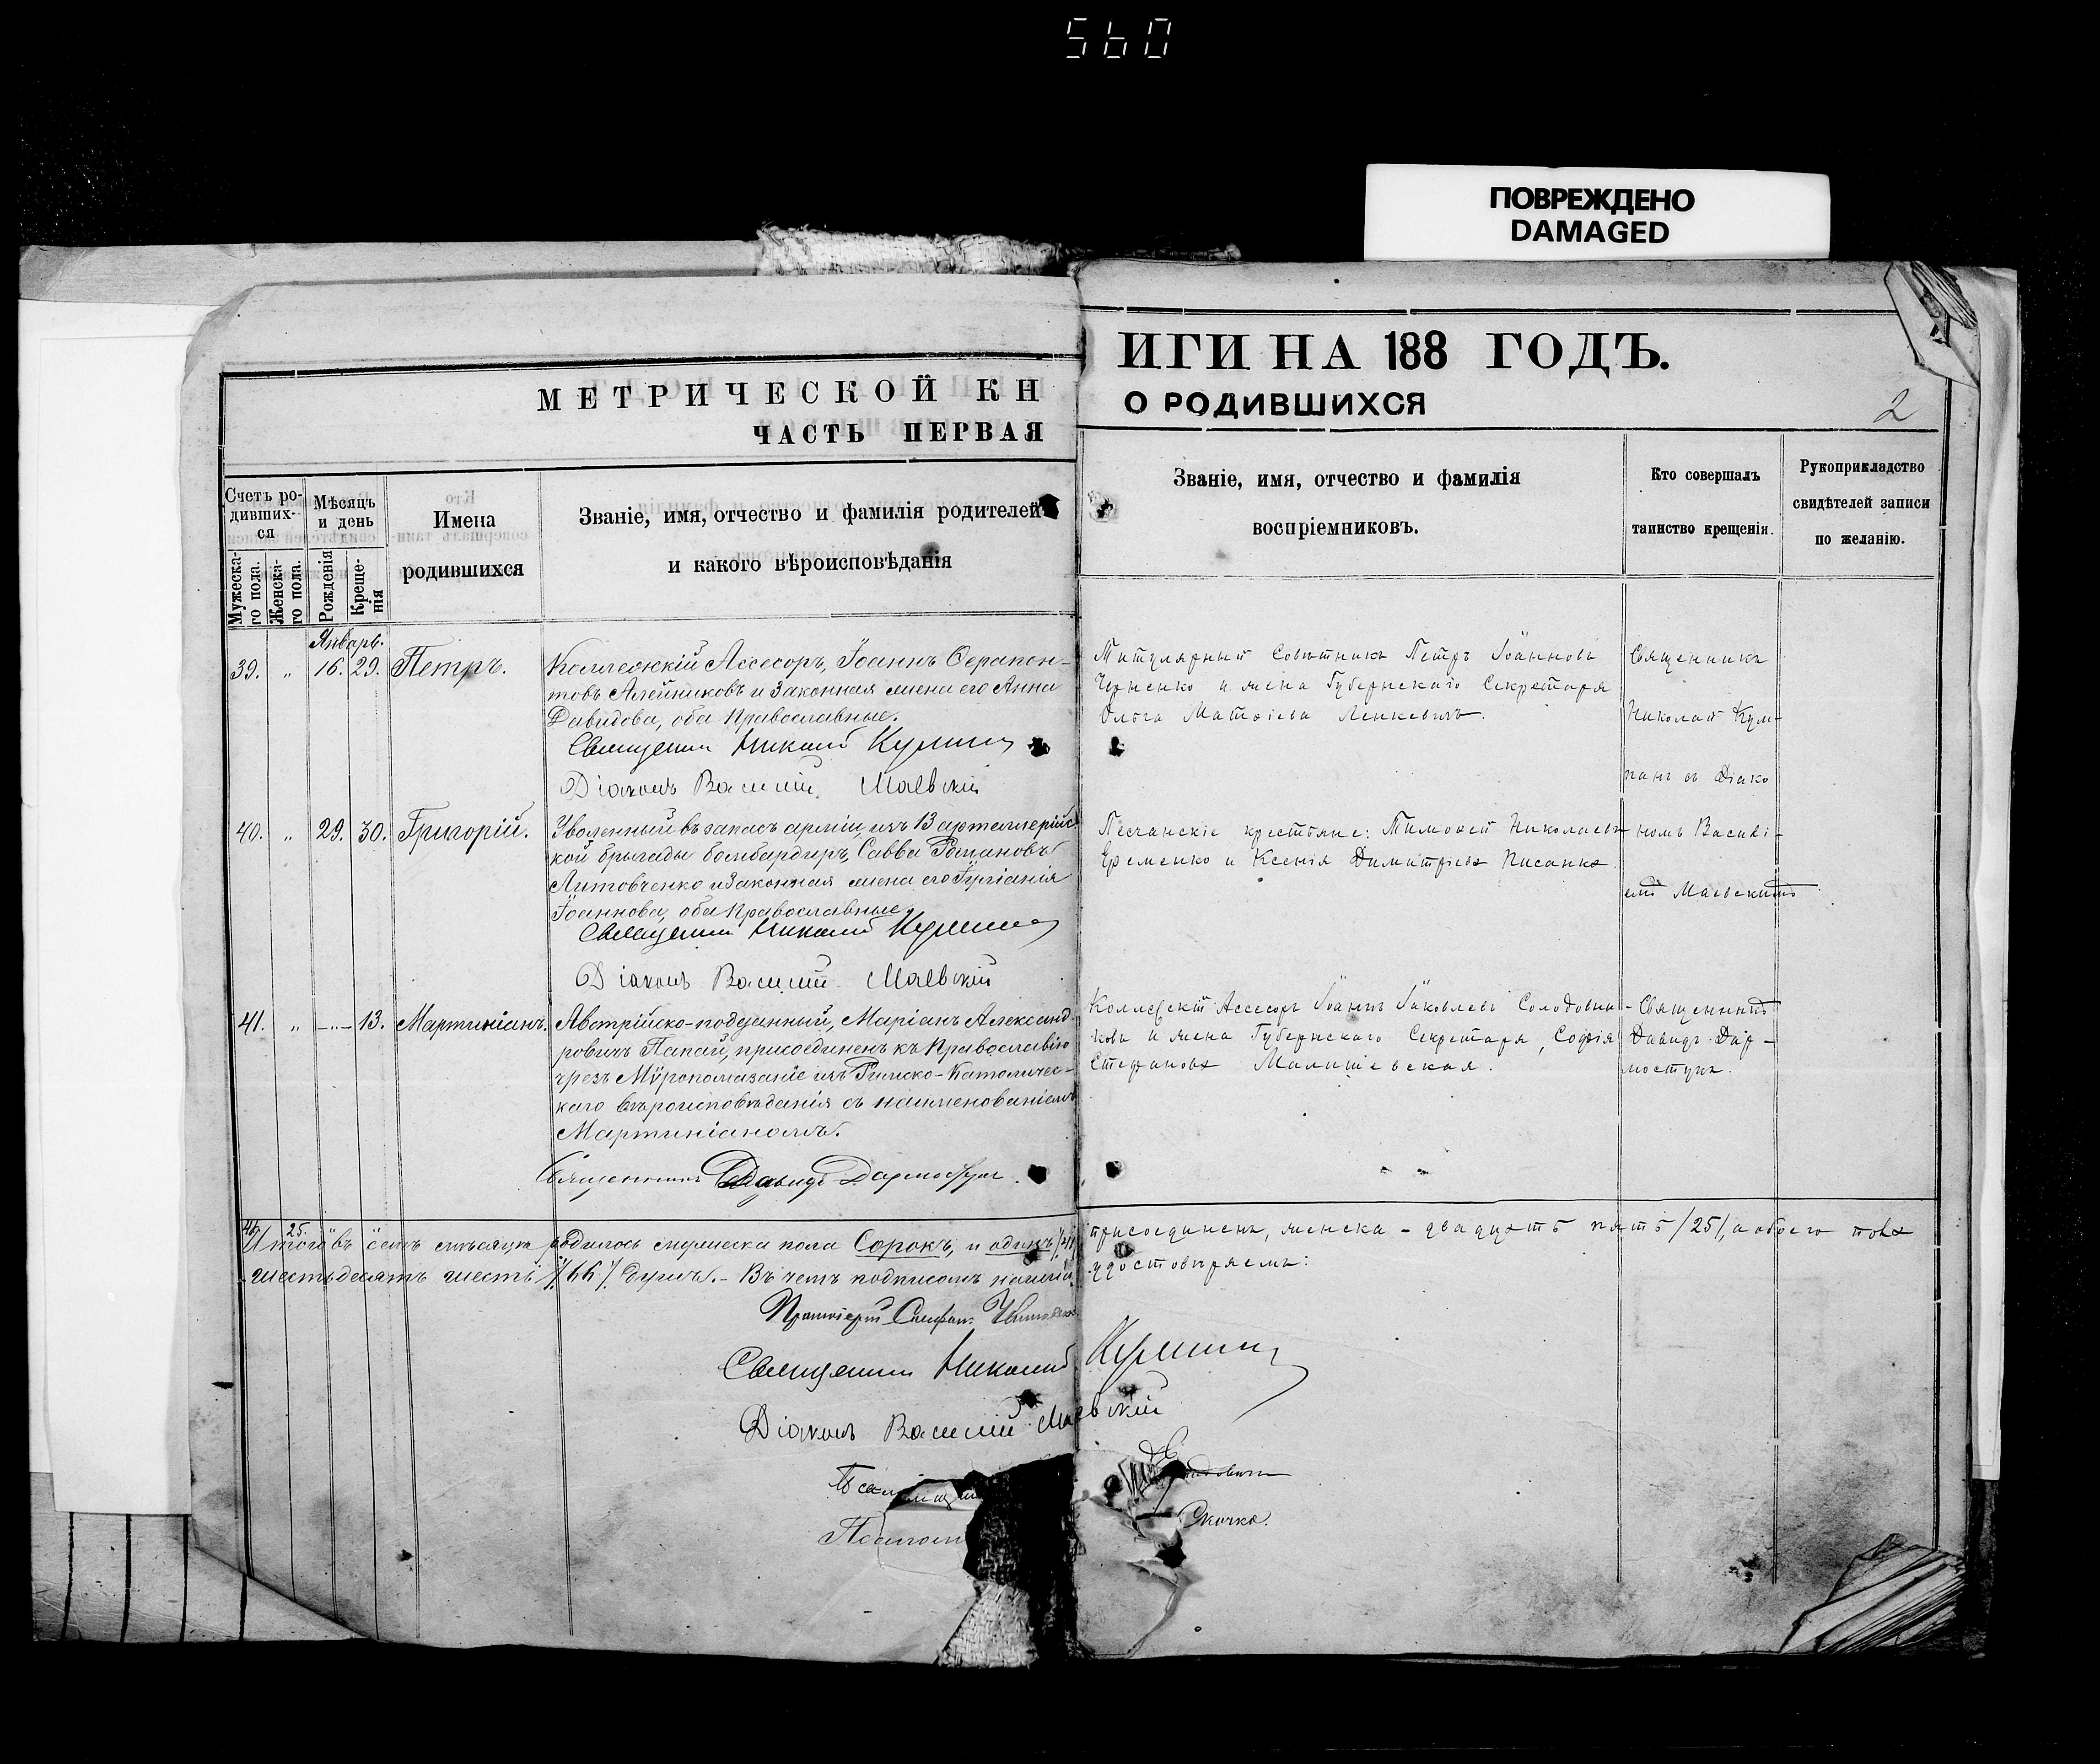 560
ПОВРЕЖДЕНО
DAMAGED
МЕТРИЧЕСКОЙ КН
ИГИ НА 188 ГОДЪ.
ЧАСТЬ ПЕРВАЯ
О РОДИВШИХСЯ
2
Счетъ ро-
дивших-
ся
Мужеска-
го пола.
Женска-
го пола.
Мѣсяцъ
и день
Рожденія
Креще-
нія
Имена
родившихся
Званіе, имя, отчество и фамилія родителей
и какого вѣроисповѣданія
Званіе, имя, отчество и фамилія
воспріемниковъ.
Кто совершалъ
таинство крещенія.
Рукоприкладство
свидѣтелей записи
по желанію.
Январь.
39. „ 16. 29. Петръ.
Коллежскій Ассесоръ, Іоаннъ Ферапон-
товъ Алейниковъ и законная жена его Анна
Давидова, оба Православные.
Священник Николай
Діаконъ Василій Маевскій
Титулярный Совѣтникъ Петръ Іоанновъ
и жена Губернскаго Секретаря
Ольга Матѳіева Ленкевичъ.
Священникъ
Николай Кум-
панъ съ Діако
40. „ 29. 30. Григорій.
Уволенный въ запасъ арміи, изъ 13 артиллерійс-
кой бригады бомбардиръ, Савва Романовъ
Литовченко и законная жена его
Іоаннова, оба Православные.
Священник Николай
Діаконъ Василій Маевскій
Песчанскіе крестьяне: Тимоѳей Николаевъ
Еременко и Ксенія Димитріева Писанка
номъ Василі-
емъ Маевскимъ
41. „ —„— 13. Мартиніанъ.
Австрійско-подданный, Маріанъ Александ-
ровичъ Папай, присоединенъ къ Православію
чрезъ Мѵропомазаніе изъ Римско-Католичес-
каго вѣроисповѣданія съ наименованіемъ
Мартиніаномъ.
Священникъ Давидъ Дармостук.
Коллежскій Ассесоръ Іоаннъ Іаковлевъ Солодовни-
ковъ и жена Губернскаго Секретаря, Софія
Стефанова
Священникъ
Давидъ Дар-
мостукъ.
41. 25.
Итого въ семъ мѣсяцѣ родилось мужеска пола Сорокъ, и одинъ /41/
присоединенъ, женска - двадцать пять /25/, а обоего пола
шестьдесятъ шесть /66/ душъ. - Въ чемъ подписомъ нашимъ
удостовѣряемъ:
Протоіерей
Священник Николай
Діаконъ Василій Маевскій
Скочко.